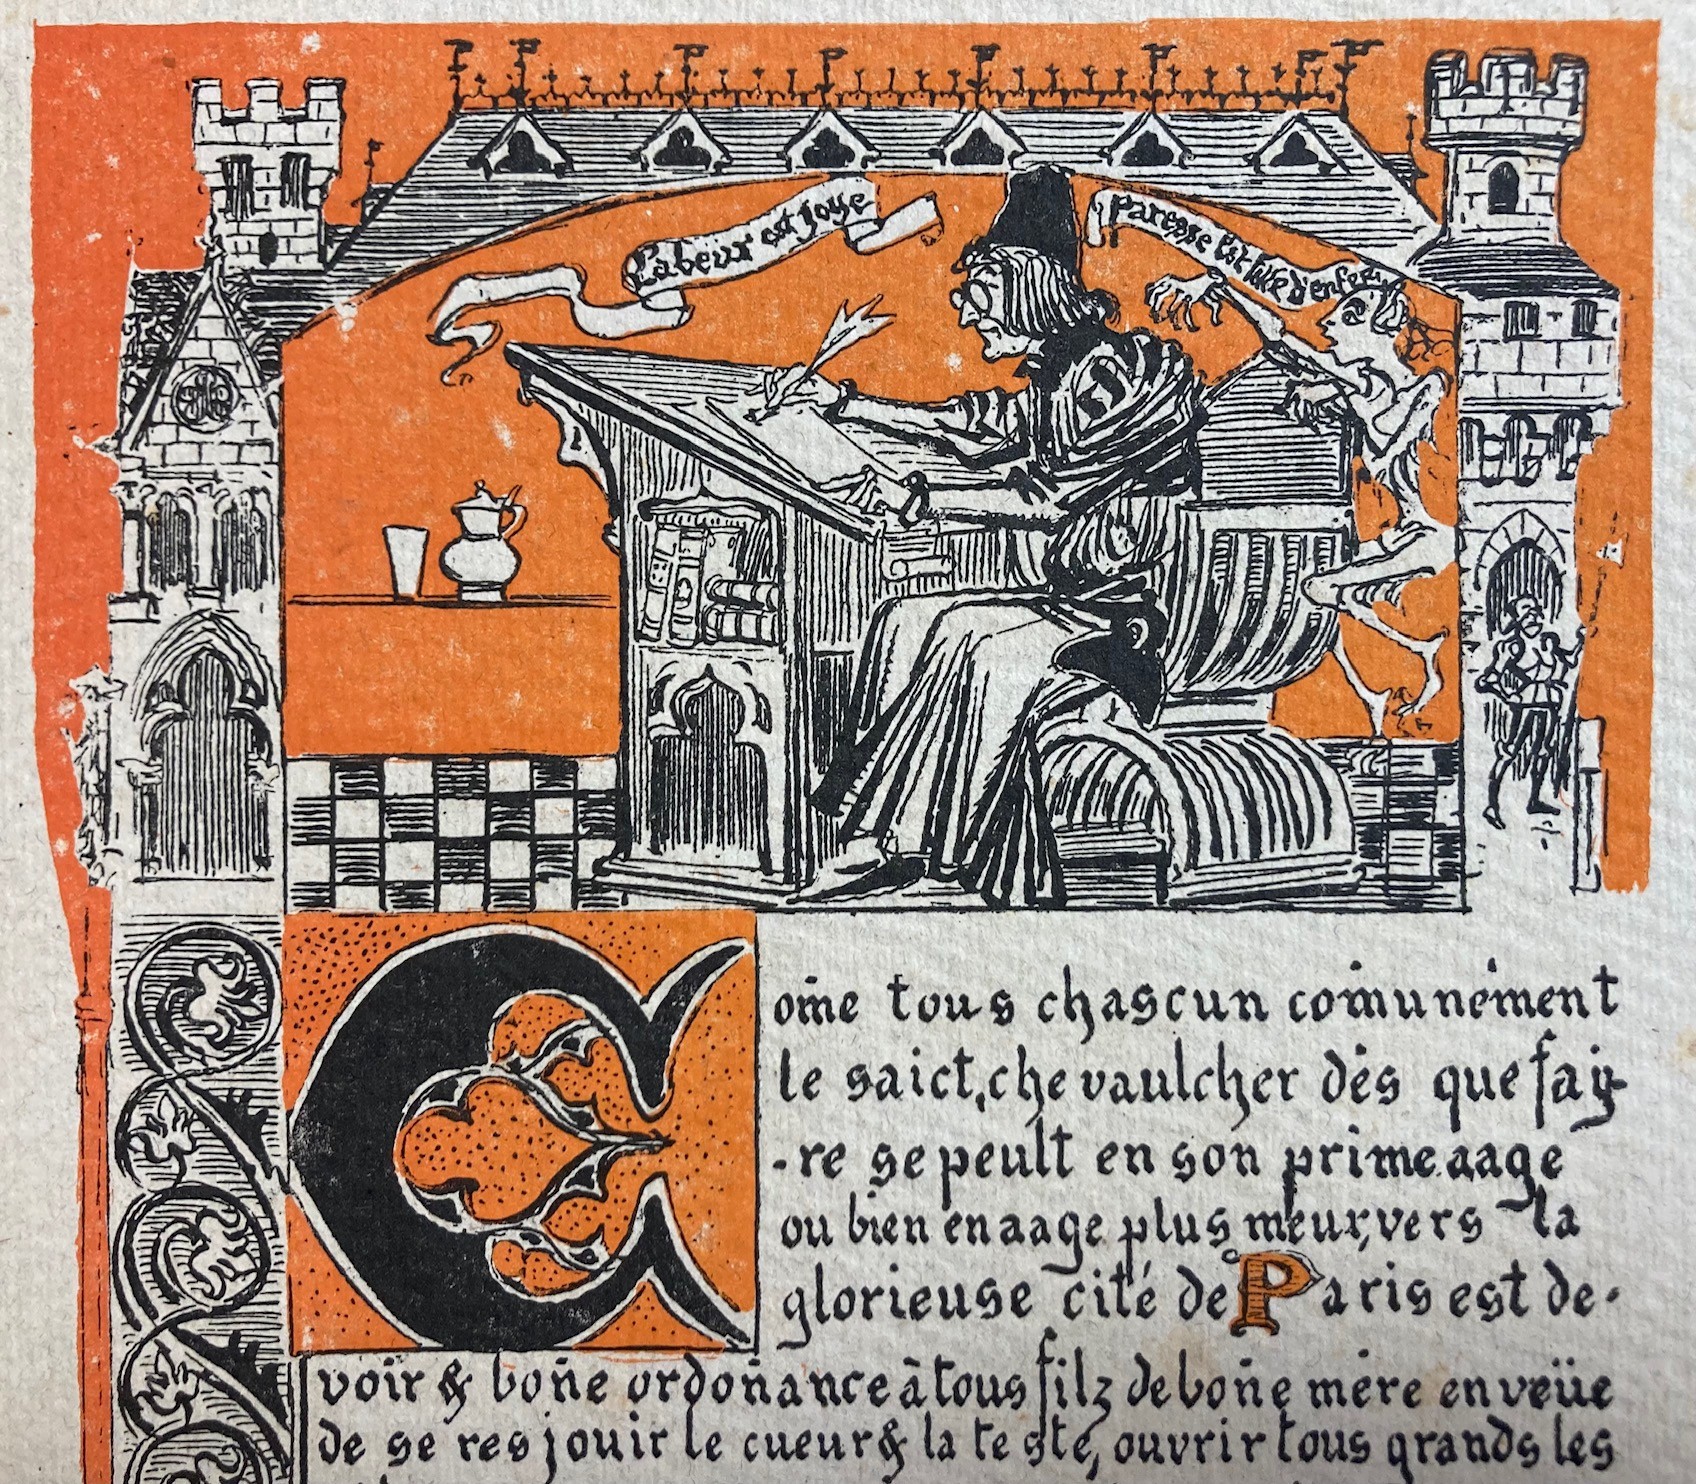 Labeur est Joye
Paresse est luxe d'enfer
Come tous chascun comunément
le saict, chevaulcher dès que fay-
-re se peult en son prime aage
ou bien en aage plus meur, vers la
glorieuse cité de Paris est de-
voir & boñe ordoñance à tous filz de boñe mère en veüe
de se resjouir le cueur & la teste, ouvrir tous grands les